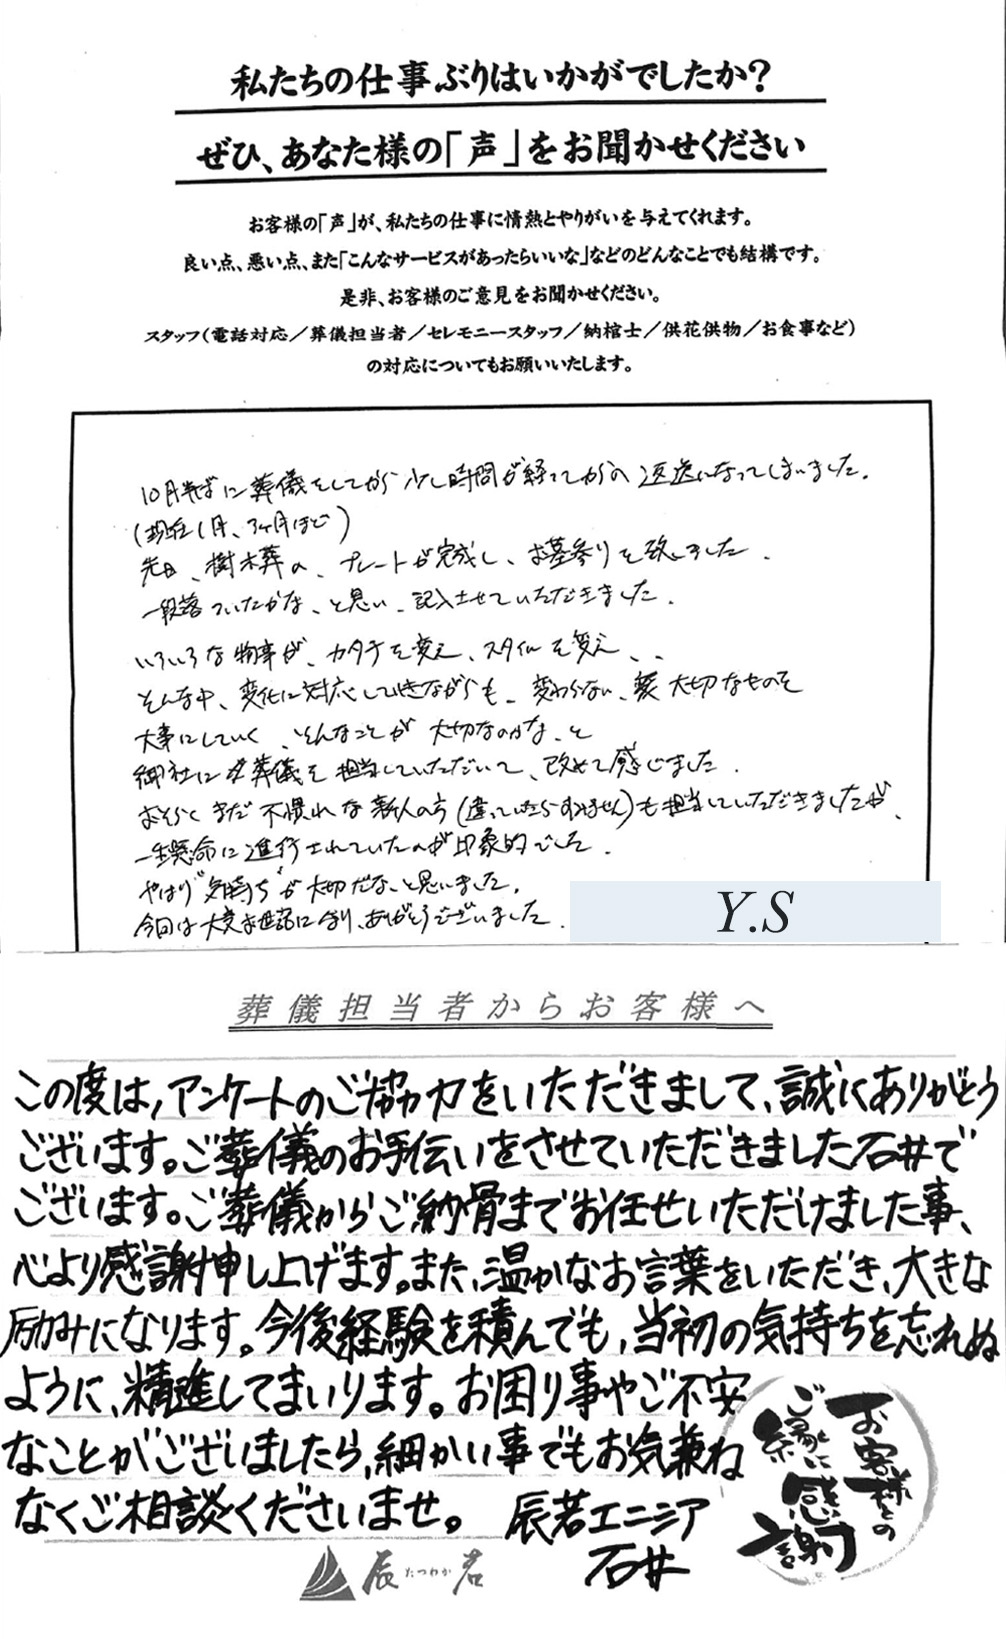 私たちの仕事ぶりはいかがでしたか?
ぜひ、あなた様の「声」をお聞かせください
お客様の「声」が、私たちの仕事に情熱とやりがいを与えてくれます。
良い点、悪い点、また「こんなサービスがあったらいいな」などのどんなことでも結構です。
是非、お客様のご意見をお聞かせください。
スタッフ(電話対応/葬儀担当者/セレモニースタッフ/納棺士/供花供物/お食事など)
の対応についてもお願いいたします。
10月半ばに葬儀をしてから少し時間が経ってからの返送になってしまいました。
(現在1月、3ヶ月ほど)
先日、樹木葬の、プレートが完成し、お墓参りを致しました。
一段落ついたかな、と思い、記入させていただきました。
いろいろな物事が、カタチを変え、スタイルを変え、、
そんな中、変化に対応していきながらも、変わらない、大切なものを
大事にしていく、そんなことが大切なのかな、と
御社に葬儀を担当していただいて、改めて感じました。
おそらくまだ不慣れな新人の方(違っていたらすみません)も担当していただきましたが、
一生懸命に進行されていたのが印象的でした。
やはり"気持ち"が大切だな、と思いました。
今回は大変お世話になり、ありがとうございました。
Y.S
葬儀担当者からお客様へ
この度は、アンケートのご協力をいただきまして、誠にありがとう
ございます。ご葬儀のお手伝いをさせていただきました石井で
ございます。ご葬儀からご納骨までお任せいただけました事、
心より感謝申し上げます。また、温かなお言葉をいただき、大きな
励みになります。今後経験を積んでも、当初の気持ちを忘れぬ
ように、精進してまいります。お困り事やご不安
なことがございましたら、細かい事でもお気兼ね
なくご相談くださいませ。 辰若エニシア
石井
お客様との
ご縁に
感謝
辰若
たつわか